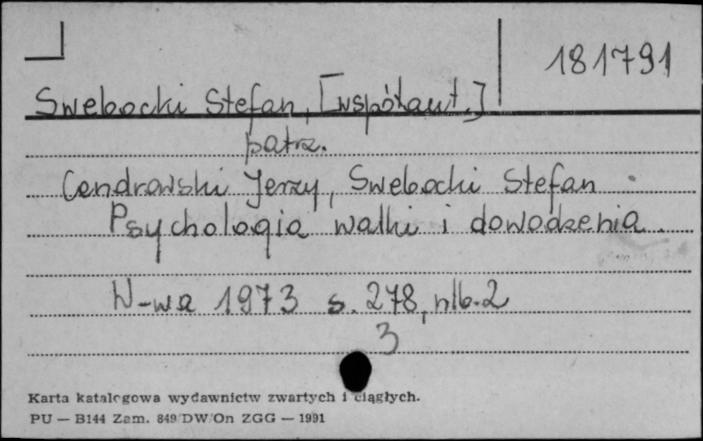 181791
Swebocki Stefan, [współaut.]
patrz.
Cendrowski Jerzy, Swebocki Stefan
Psychologia walki i dowodzenia.
W-wa 1973 s. 278, nlb. 2
3
Karta katalogowa wydawnictw zwartych i ciągłych.
PU — B144 Zam. 849/DW/On ZGG — 1991